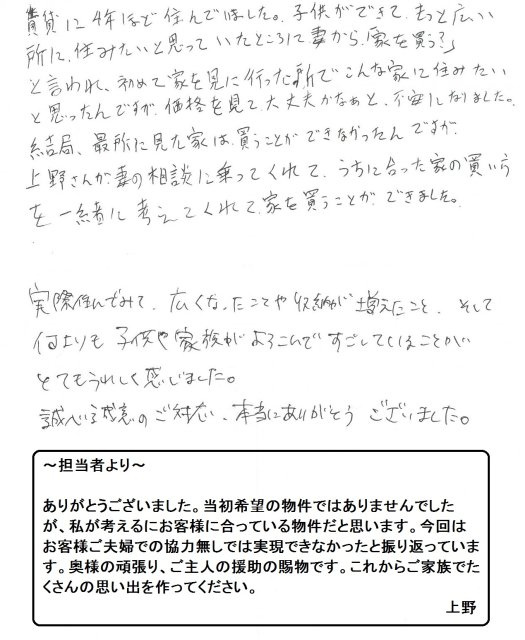 賃貸に4年ほど住んでいました。子供ができて、もっと広い
所に、住みたいと思っていたところに妻から「家を買う?」
と言われ、初めて家を見に行った所でこんな家に住みたい
と思ったんですが、価格を見て、大丈夫かなぁと、不安になりました。
結局、最所に見た家は、買うことができなかったんですが
上野さんが妻の相談に乗ってくれて、うちに合った家の買い方
を一緒に考えてくれて、家を買うことができました。
実際住んでみて、広くなったことや収納が増えたこと、そして
何よりも子供や家族がよろこんですごしていることが
とてもうれしく感じました。
誠心誠意のご対応、本当にありがとうございました。
～担当者より～
ありがとうございました。当初希望の物件ではありませんでした
が、私が考えるにお客様に合っている物件だと思います。今回は
お客様ご夫婦での協力無しでは実現できなかったと振り返っていま
す。奥様の頑張り、ご主人の援助の賜物です。これからご家族でた
くさんの思い出を作ってください。
上野